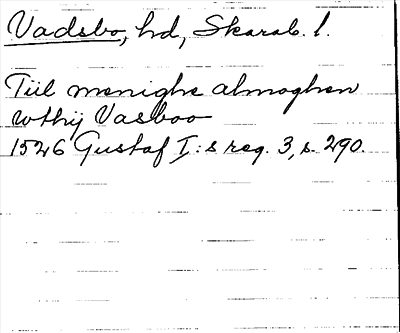 Vadsbo, hd, Skarab. l.
Tiil menighe almoghen
wthij Vasboo
1526 Gustaf I:s reg. 3, s. 290.